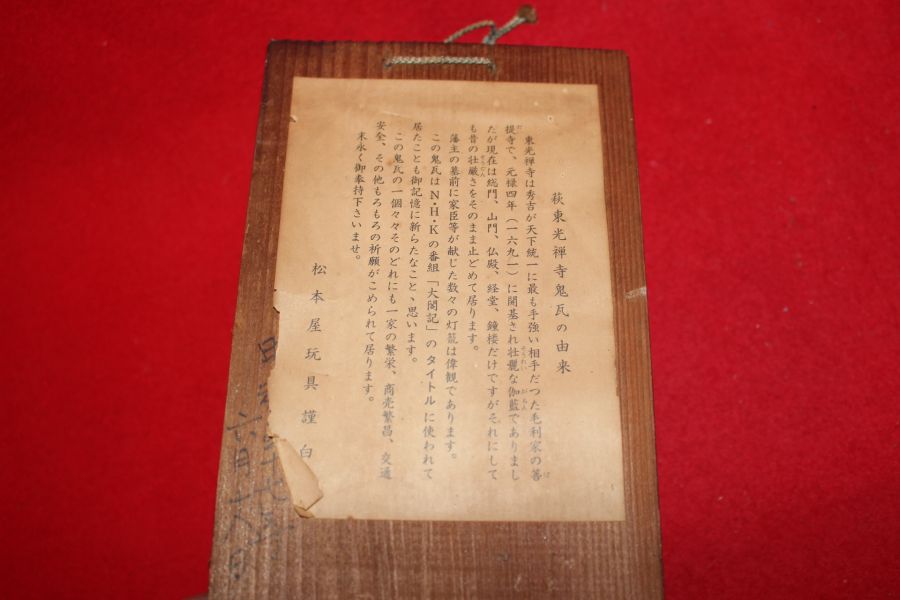 萩東光禅寺鬼瓦の由来
東光禅寺は秀吉が天下統一に最も手強い相手だつた毛利家の菩
ぼ
提寺で、元禄四年（一六九一）に開基され壮麗な伽藍でありまし
だ
そうれい
がらん
たが現在は総門、山門、仏殿、経堂、鐘楼だけですがそれにして
も昔の壮厳さをそのまま止どめて居ります。
そうごん
藩主の墓前に家臣等が献じた数々の灯籠は偉観であります。
この鬼瓦はN・H・Kの番組「大閤記」のタイトルに使われて
居たことも御記憶に新らたなこと、思います。
この鬼瓦の一個々々そのどれにも一家の繁栄、商売繁昌、交通
安全、その他もろもろの祈願がこめられて居ります。
末永く御奉持下さいませ。
松本屋玩具謹白
六月十八日